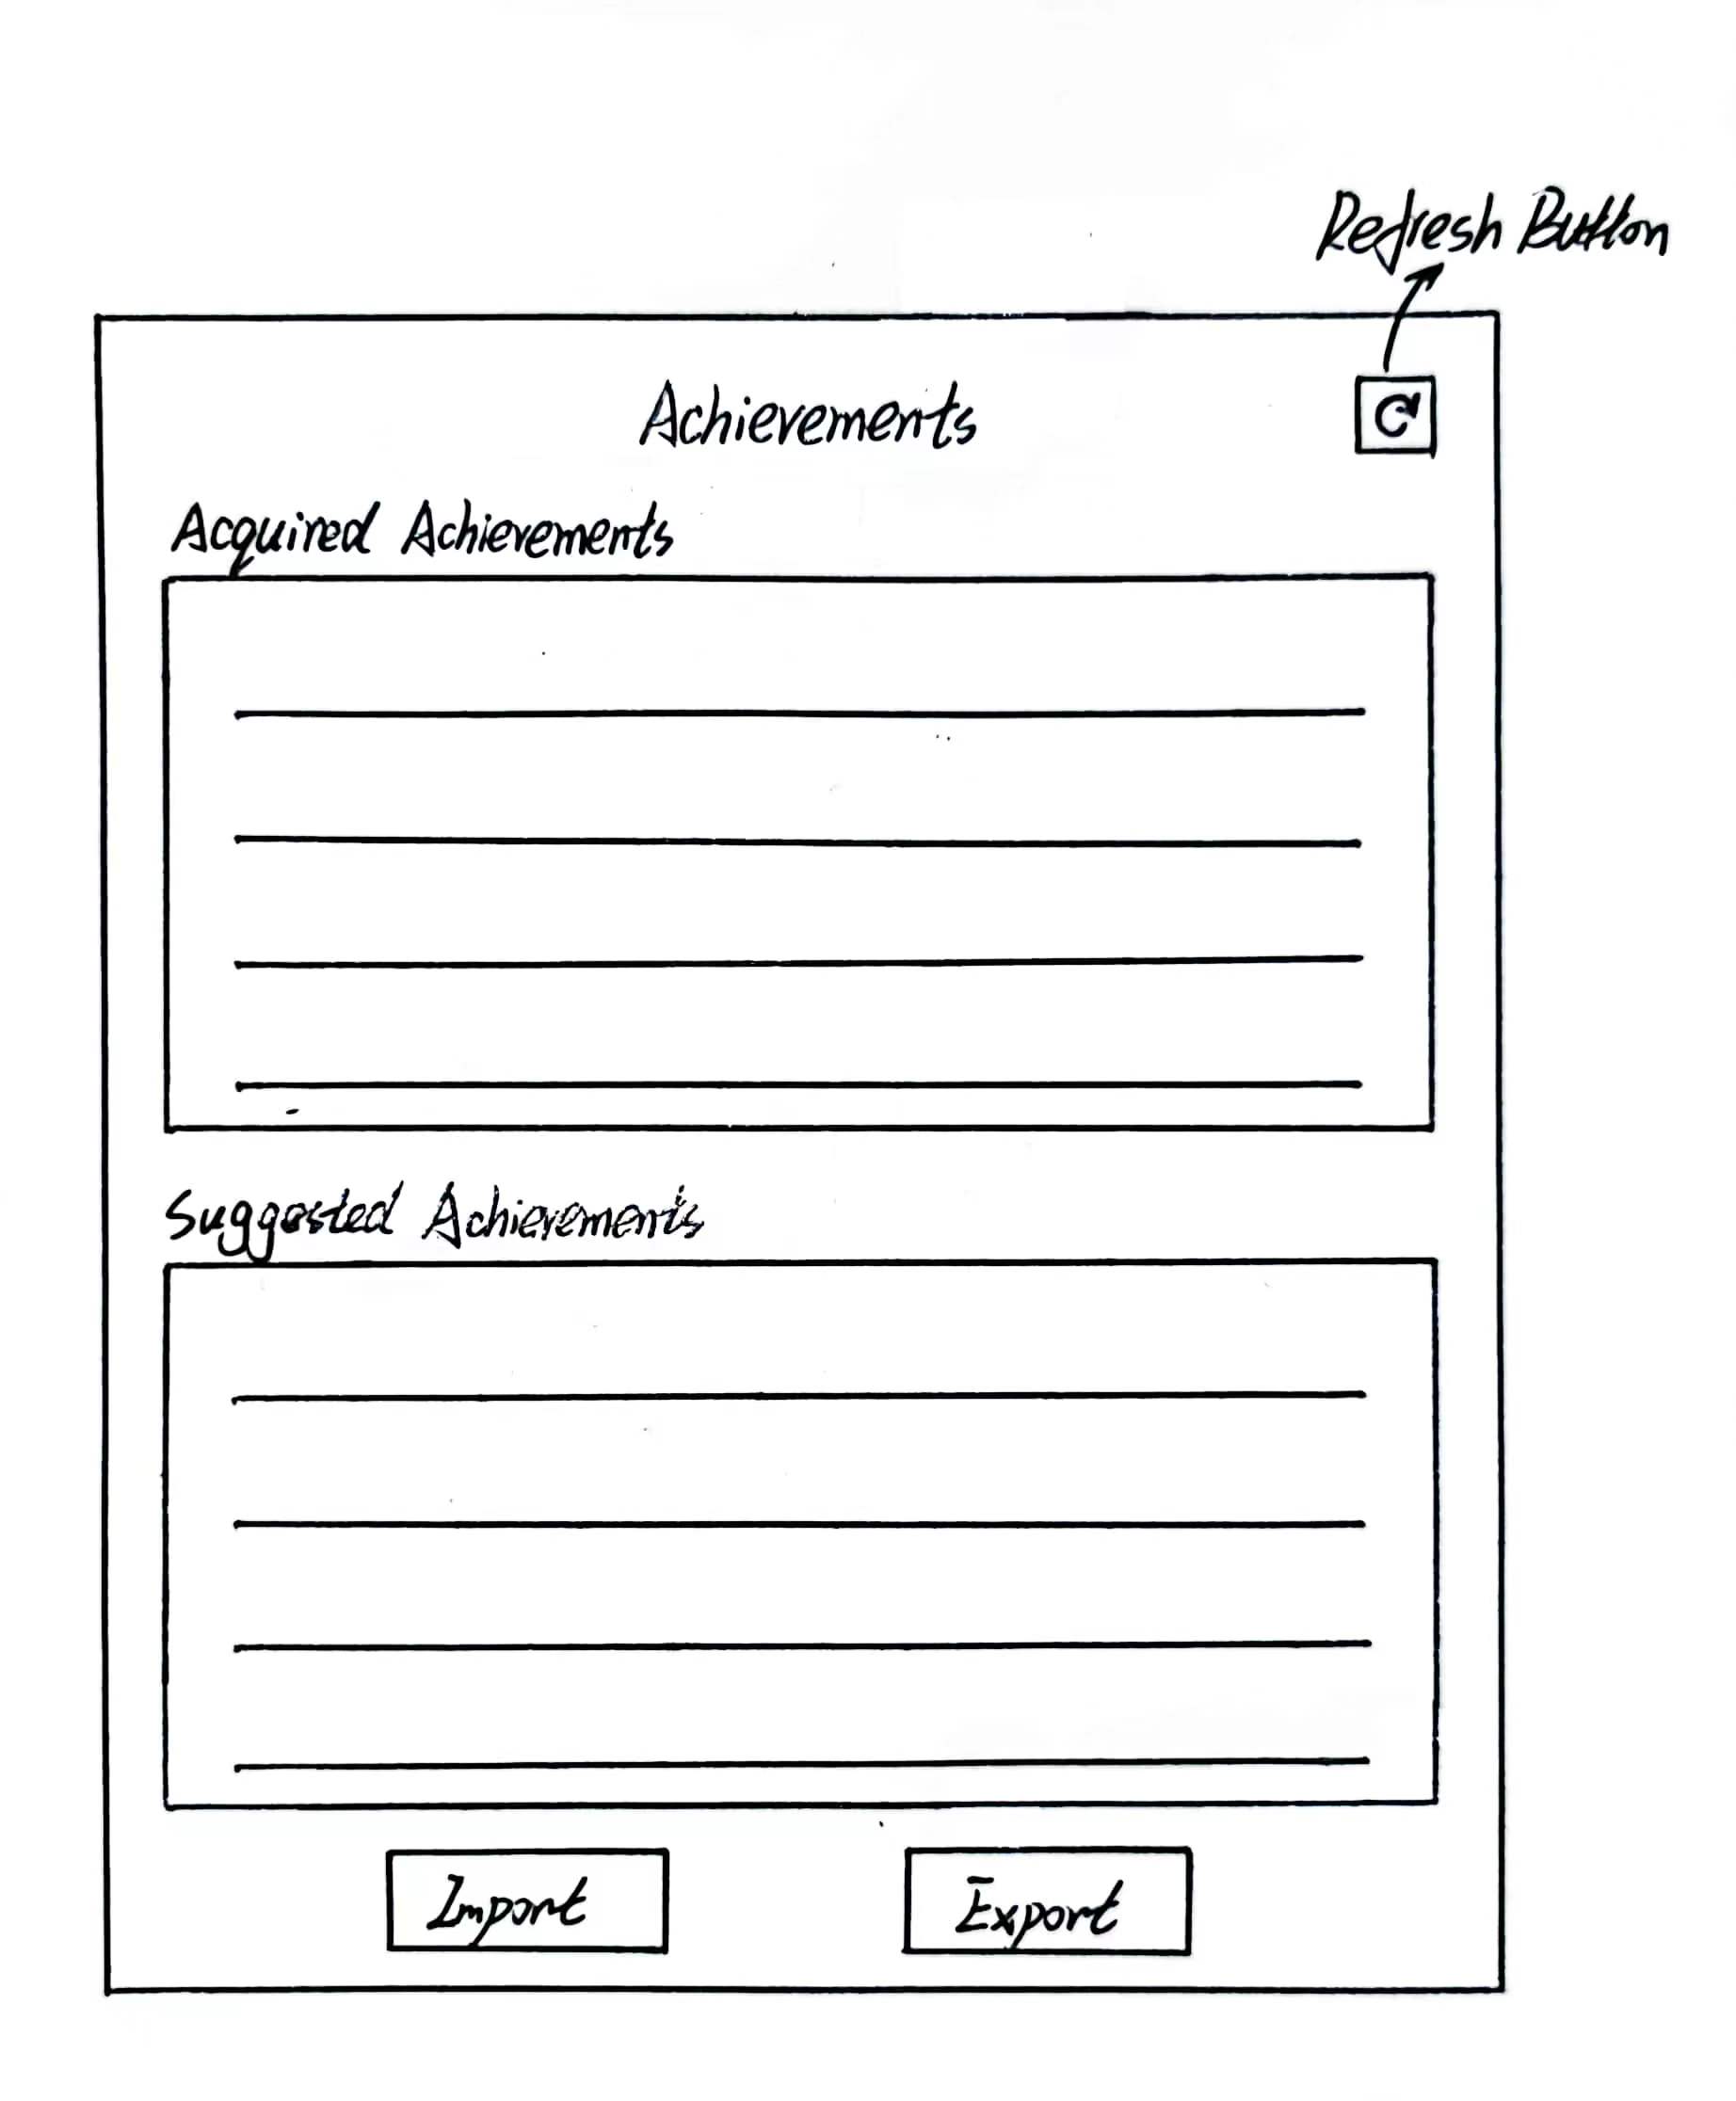 Refresh Button
Achievements
Acquired Achievements
Suggested Achievements
Import
Export